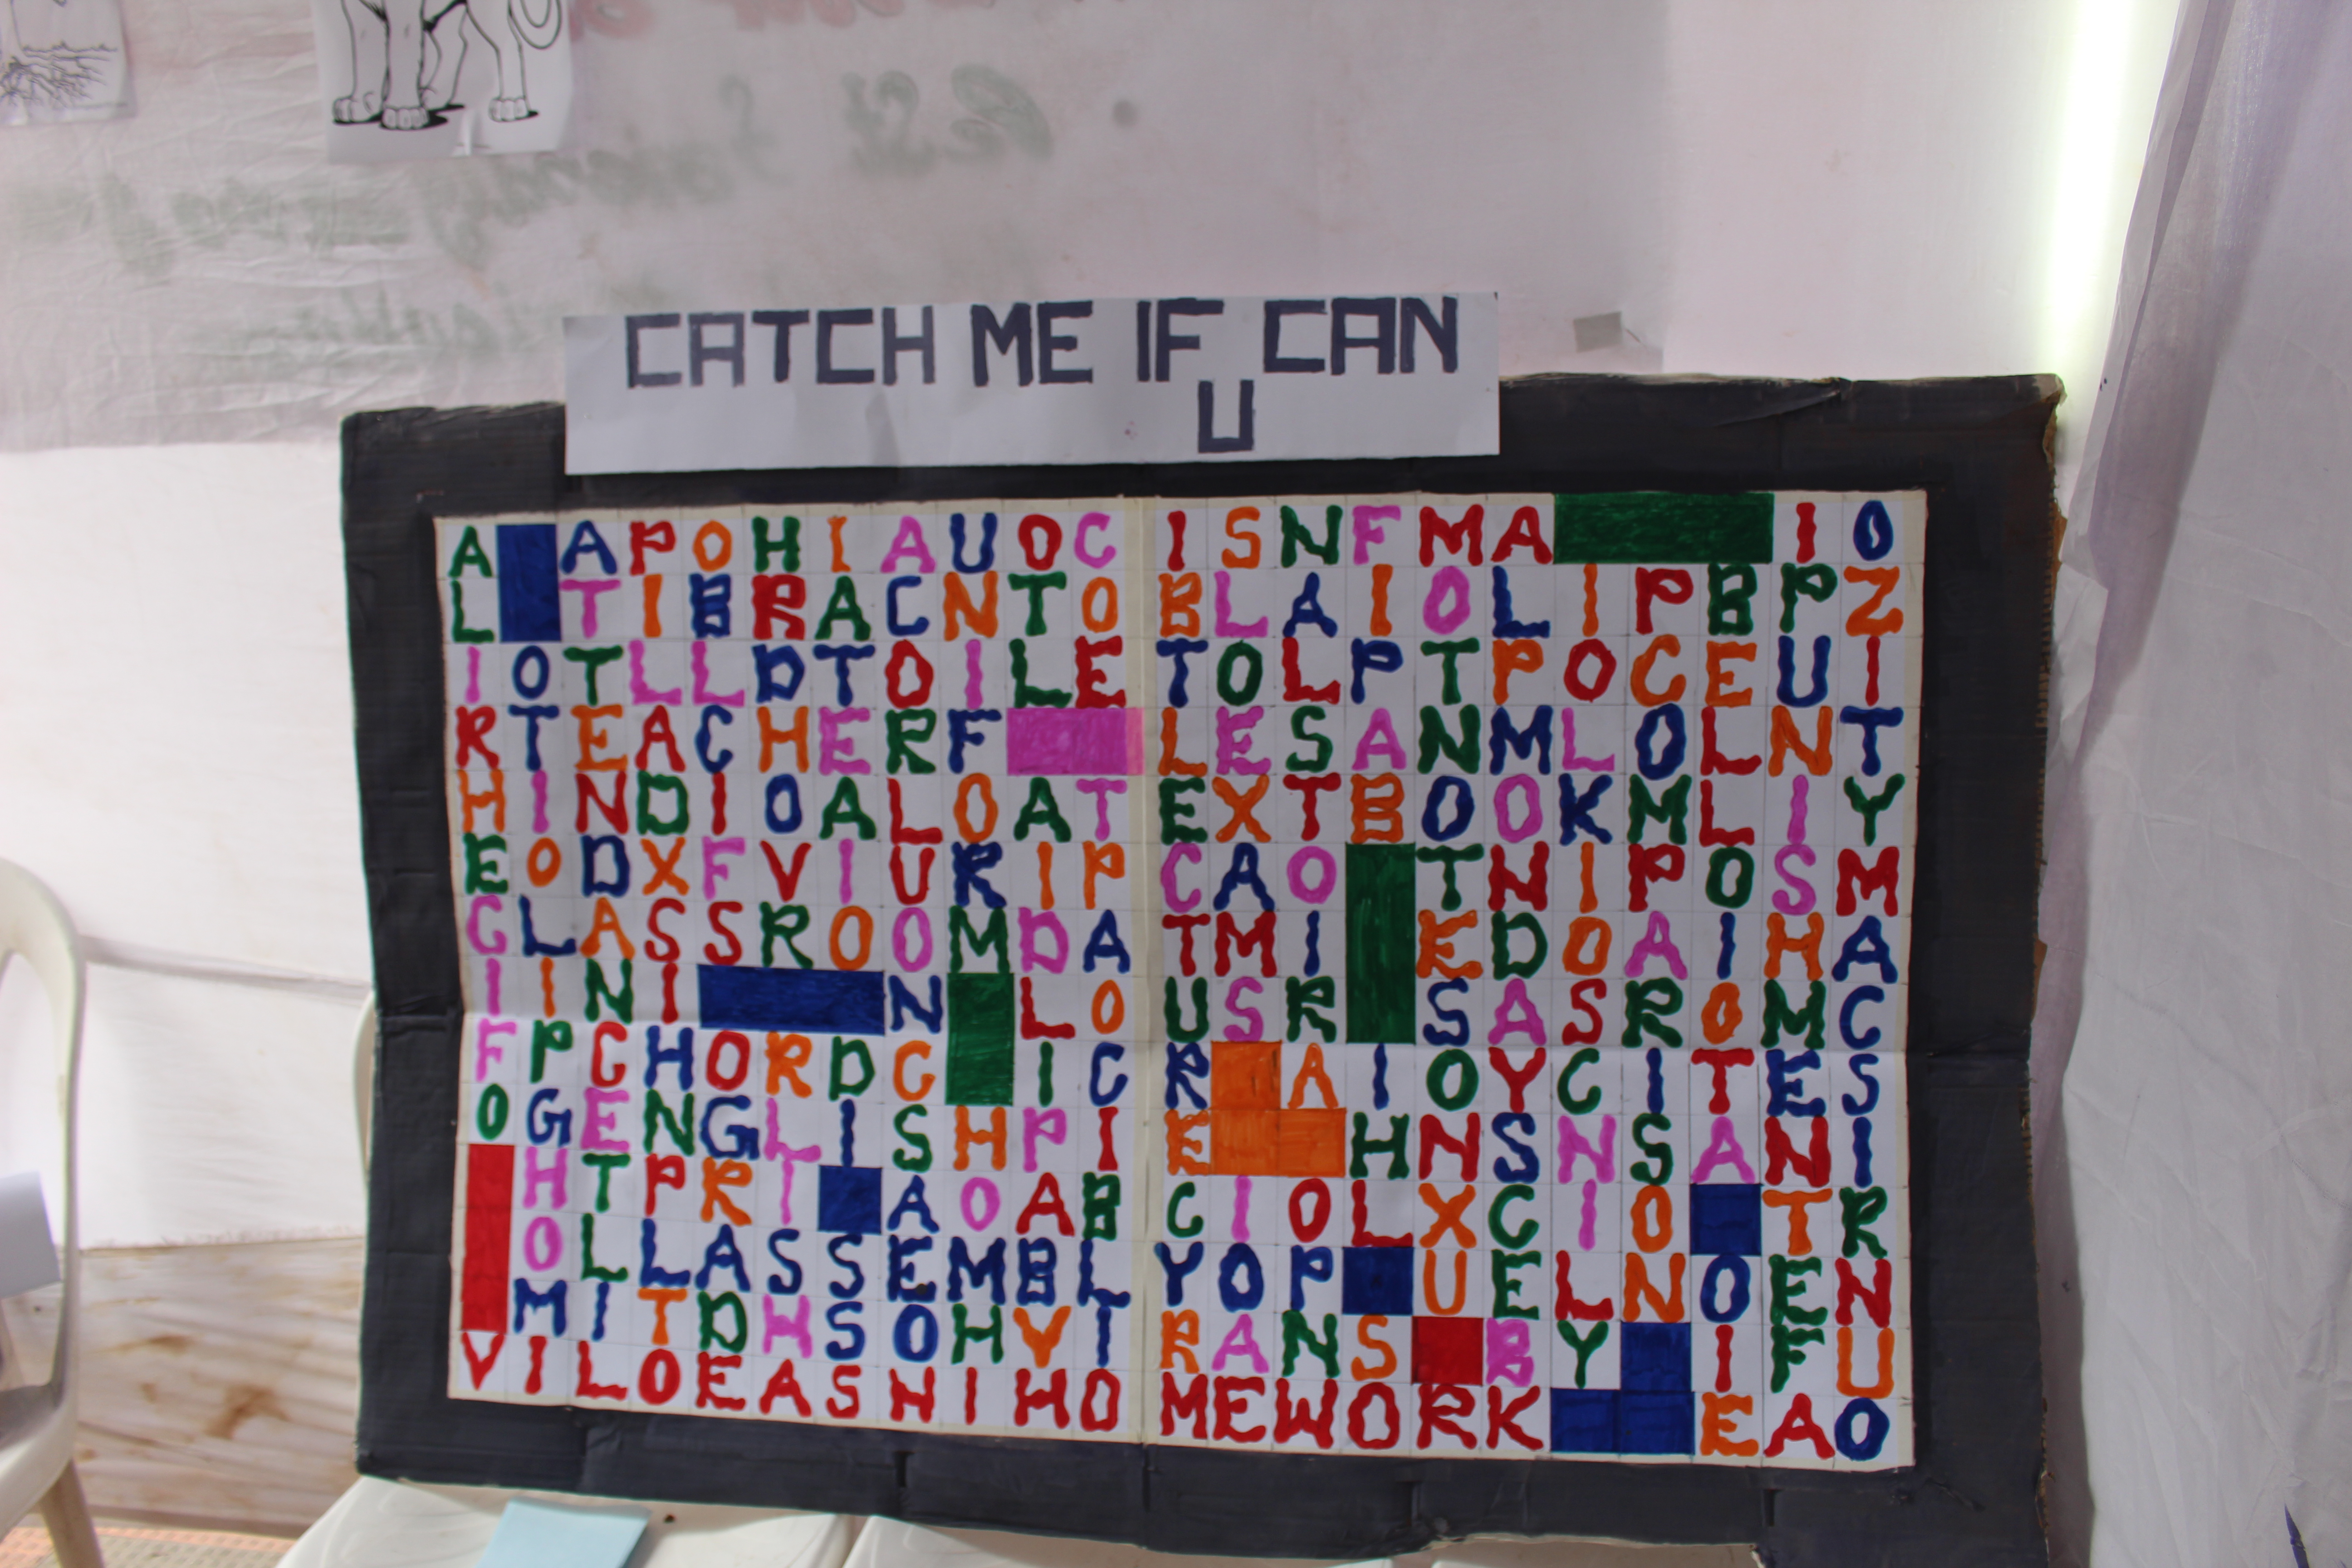 CATCH ME IF CAN
U
A A P O H I A U O C I S N F M A I O
L T I B R A C N T O B L A I O L I P B P Z
I O T L L D T O I L E T O L P T P O C E U I
R T E A C H E R F L E S A N M L O L N T
H I N D I O A L O A T E X T B O O K M L I Y
E O D X F V I U R I P C A O T N I P O S M
C L A S S R O O M D A T M I E D O A I H A
I I N I N L O U S R S A S R O M C
F P C H O R D C I C R A I O Y C I T E S
O G E N G L I S H P I E H N S N S A N I
H T P R I A O A B C I O L X C I O T R
O L L A S S E M B L Y O P U E L N O E N
M I T D H S O H V I R A N S B Y I F U
V I L O E A S H I H O M E W O R K E A O